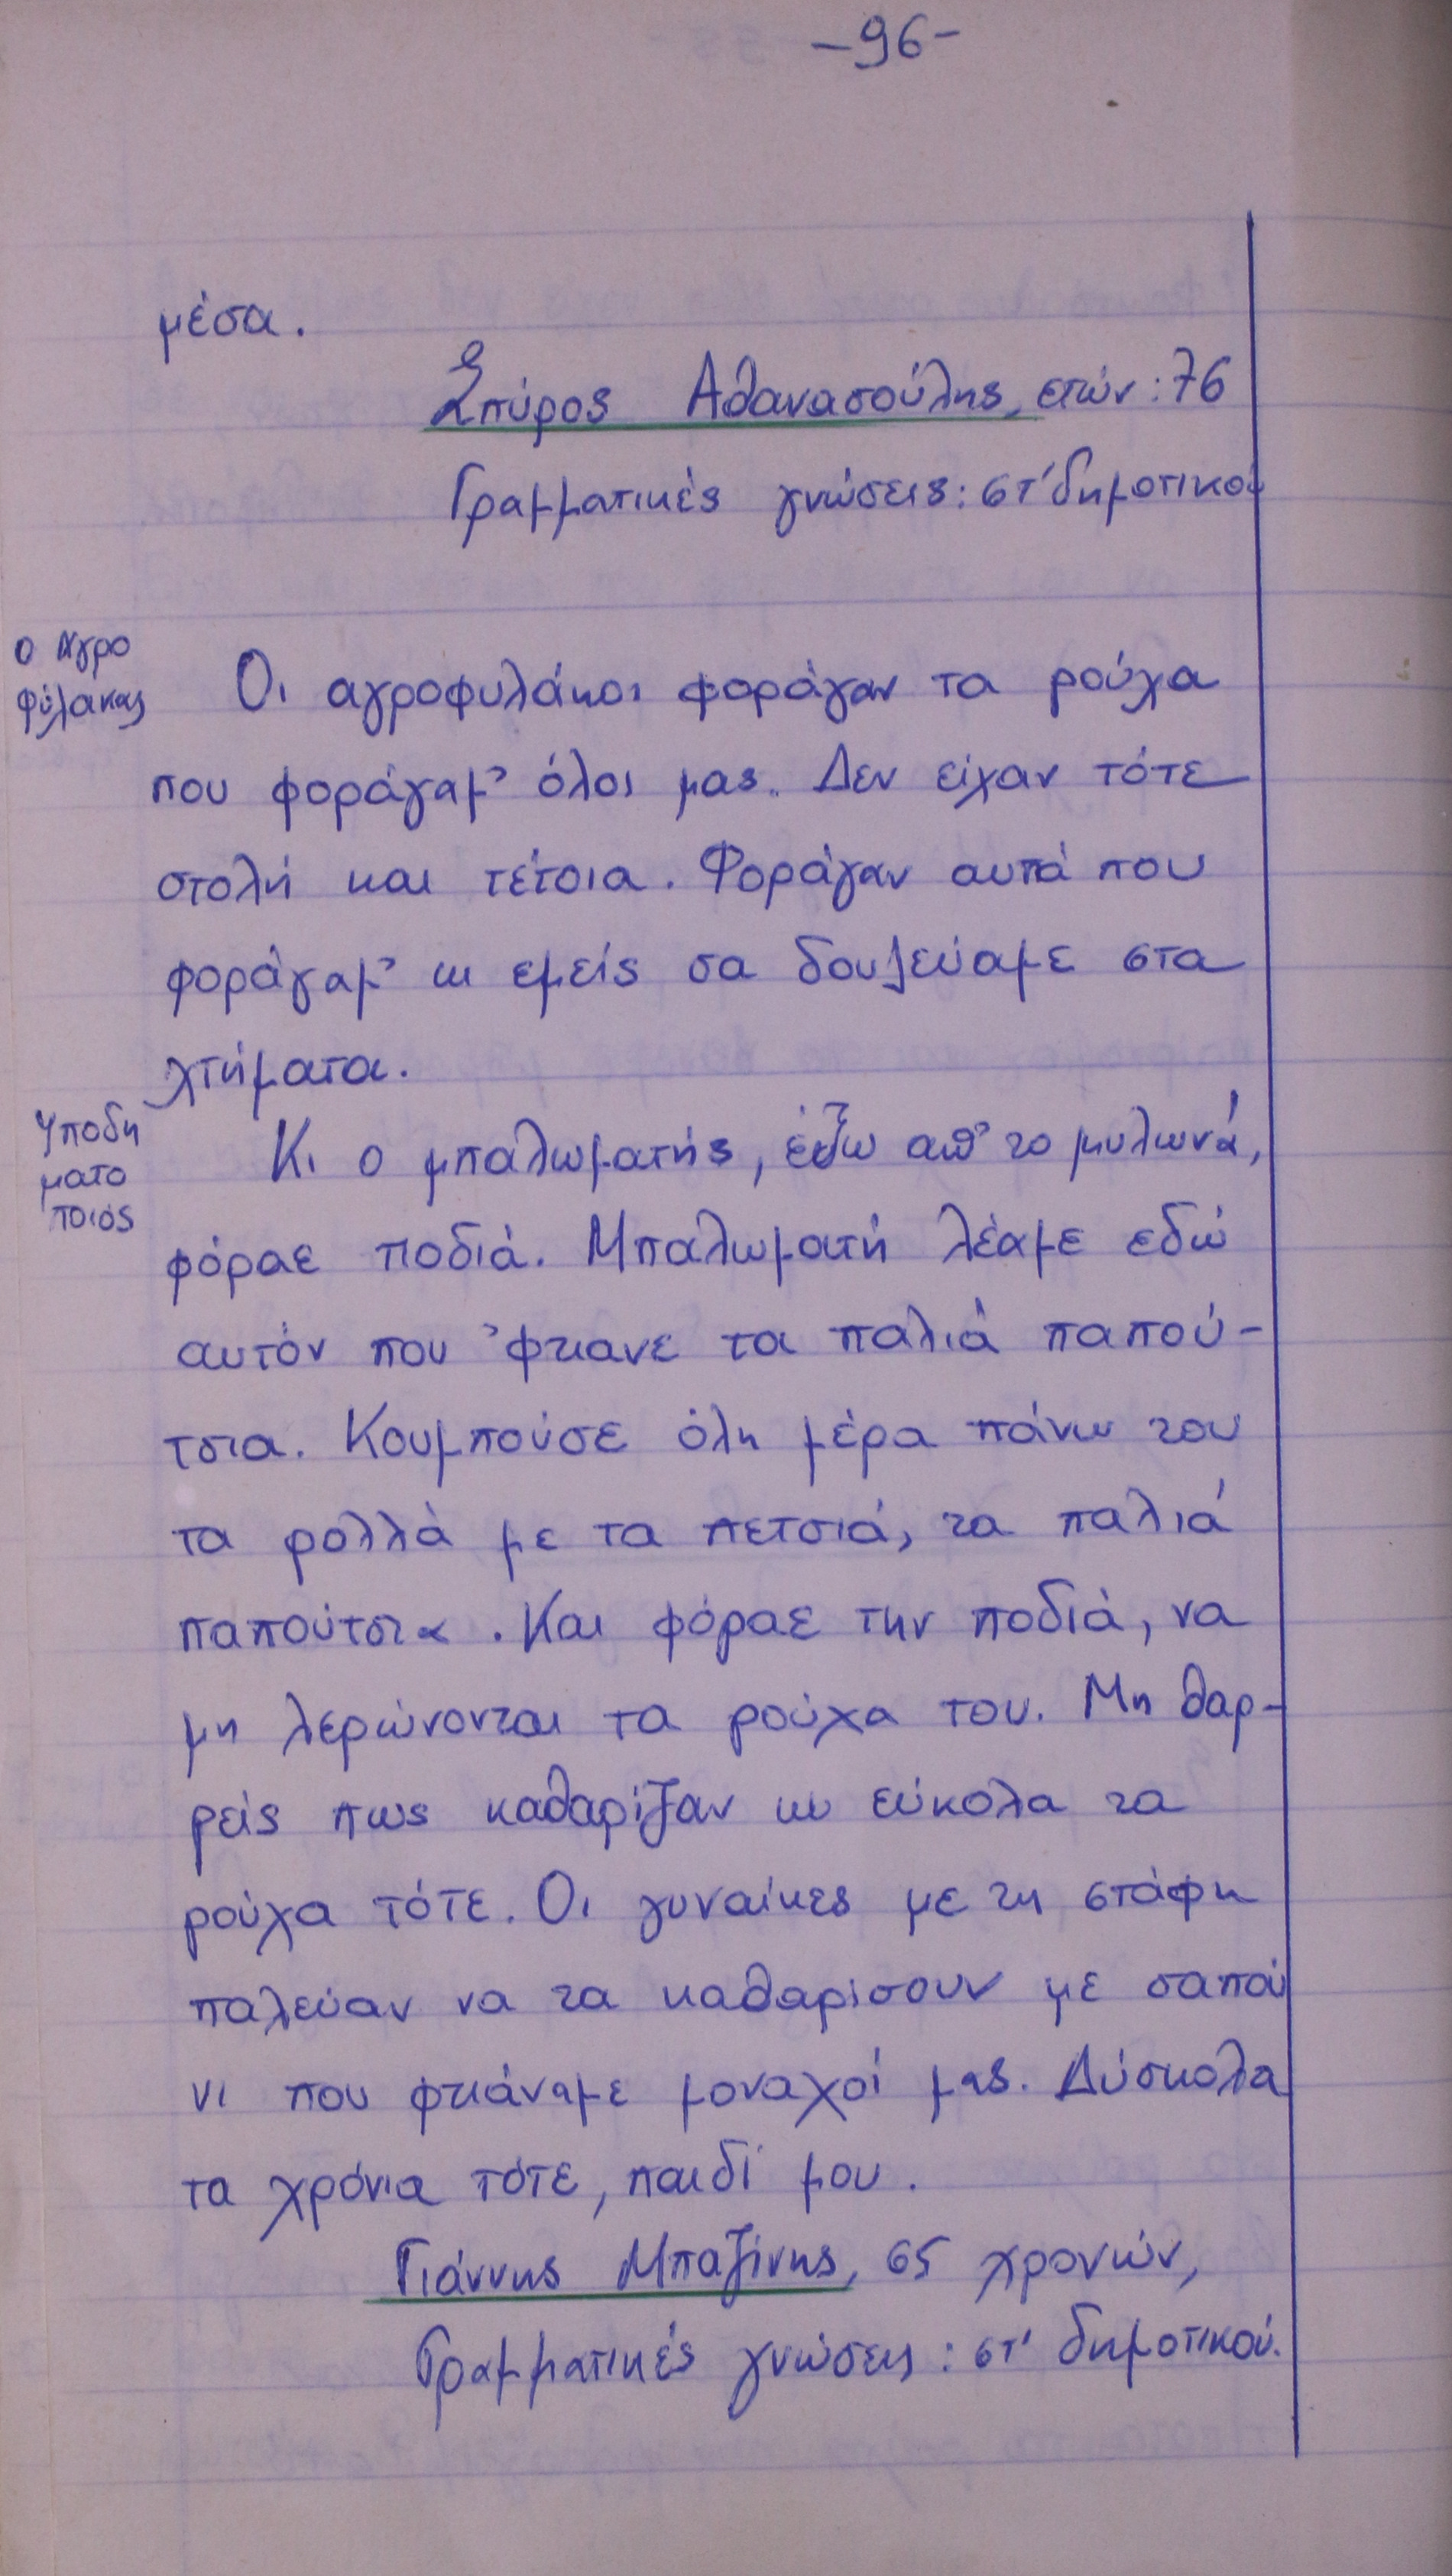 -96-
μέσα.
Σπύρος Αθανασούλης, ετών: 76
Γραμματικές γνώσεις: στ' δημοτικού
Ο Αγρο
φύλακας
Οι αγροφυλάκοι φοράγαν τα ρούχα
που φοράγαμ' όλοι μας. Δεν είχαν τότε
στολή και τέτοια. Φοράγαν αυτά που
φοράγαμ' κι εμείς σα δουλεύαμε στα
χτήματα.
Υποδη
ματο
ποιός
Κι ο μπαλωματής, έξω απ' το μυλωνά,
φόραε ποδιά. Μπαλωματή λέαμε εδώ
αυτόν που 'φκιανε τα παλιά παπού-
τσια. Κουμπούσε όλη μέρα πάνω του
τα φολλά με τα πετσιά, τα παλιά
παπούτσια. Και φόραε την ποδιά, να
μη λερώνονται τα ρούχα του. Μη θαρ-
ρείς πως καθαρίζαν κι εύκολα τα
ρούχα τότε. Οι γυναίκες με τη στάφη
παλεύαν να τα καθαρίσουν με σαπού
νι που φκιάναμε μοναχοί μας. Δύσκολα
τα χρόνια τότε, παιδί μου.
Γιάννης Μπαζίνης, 65 χρονών,
Γραμματικές γνώσεις: στ' δημοτικού.